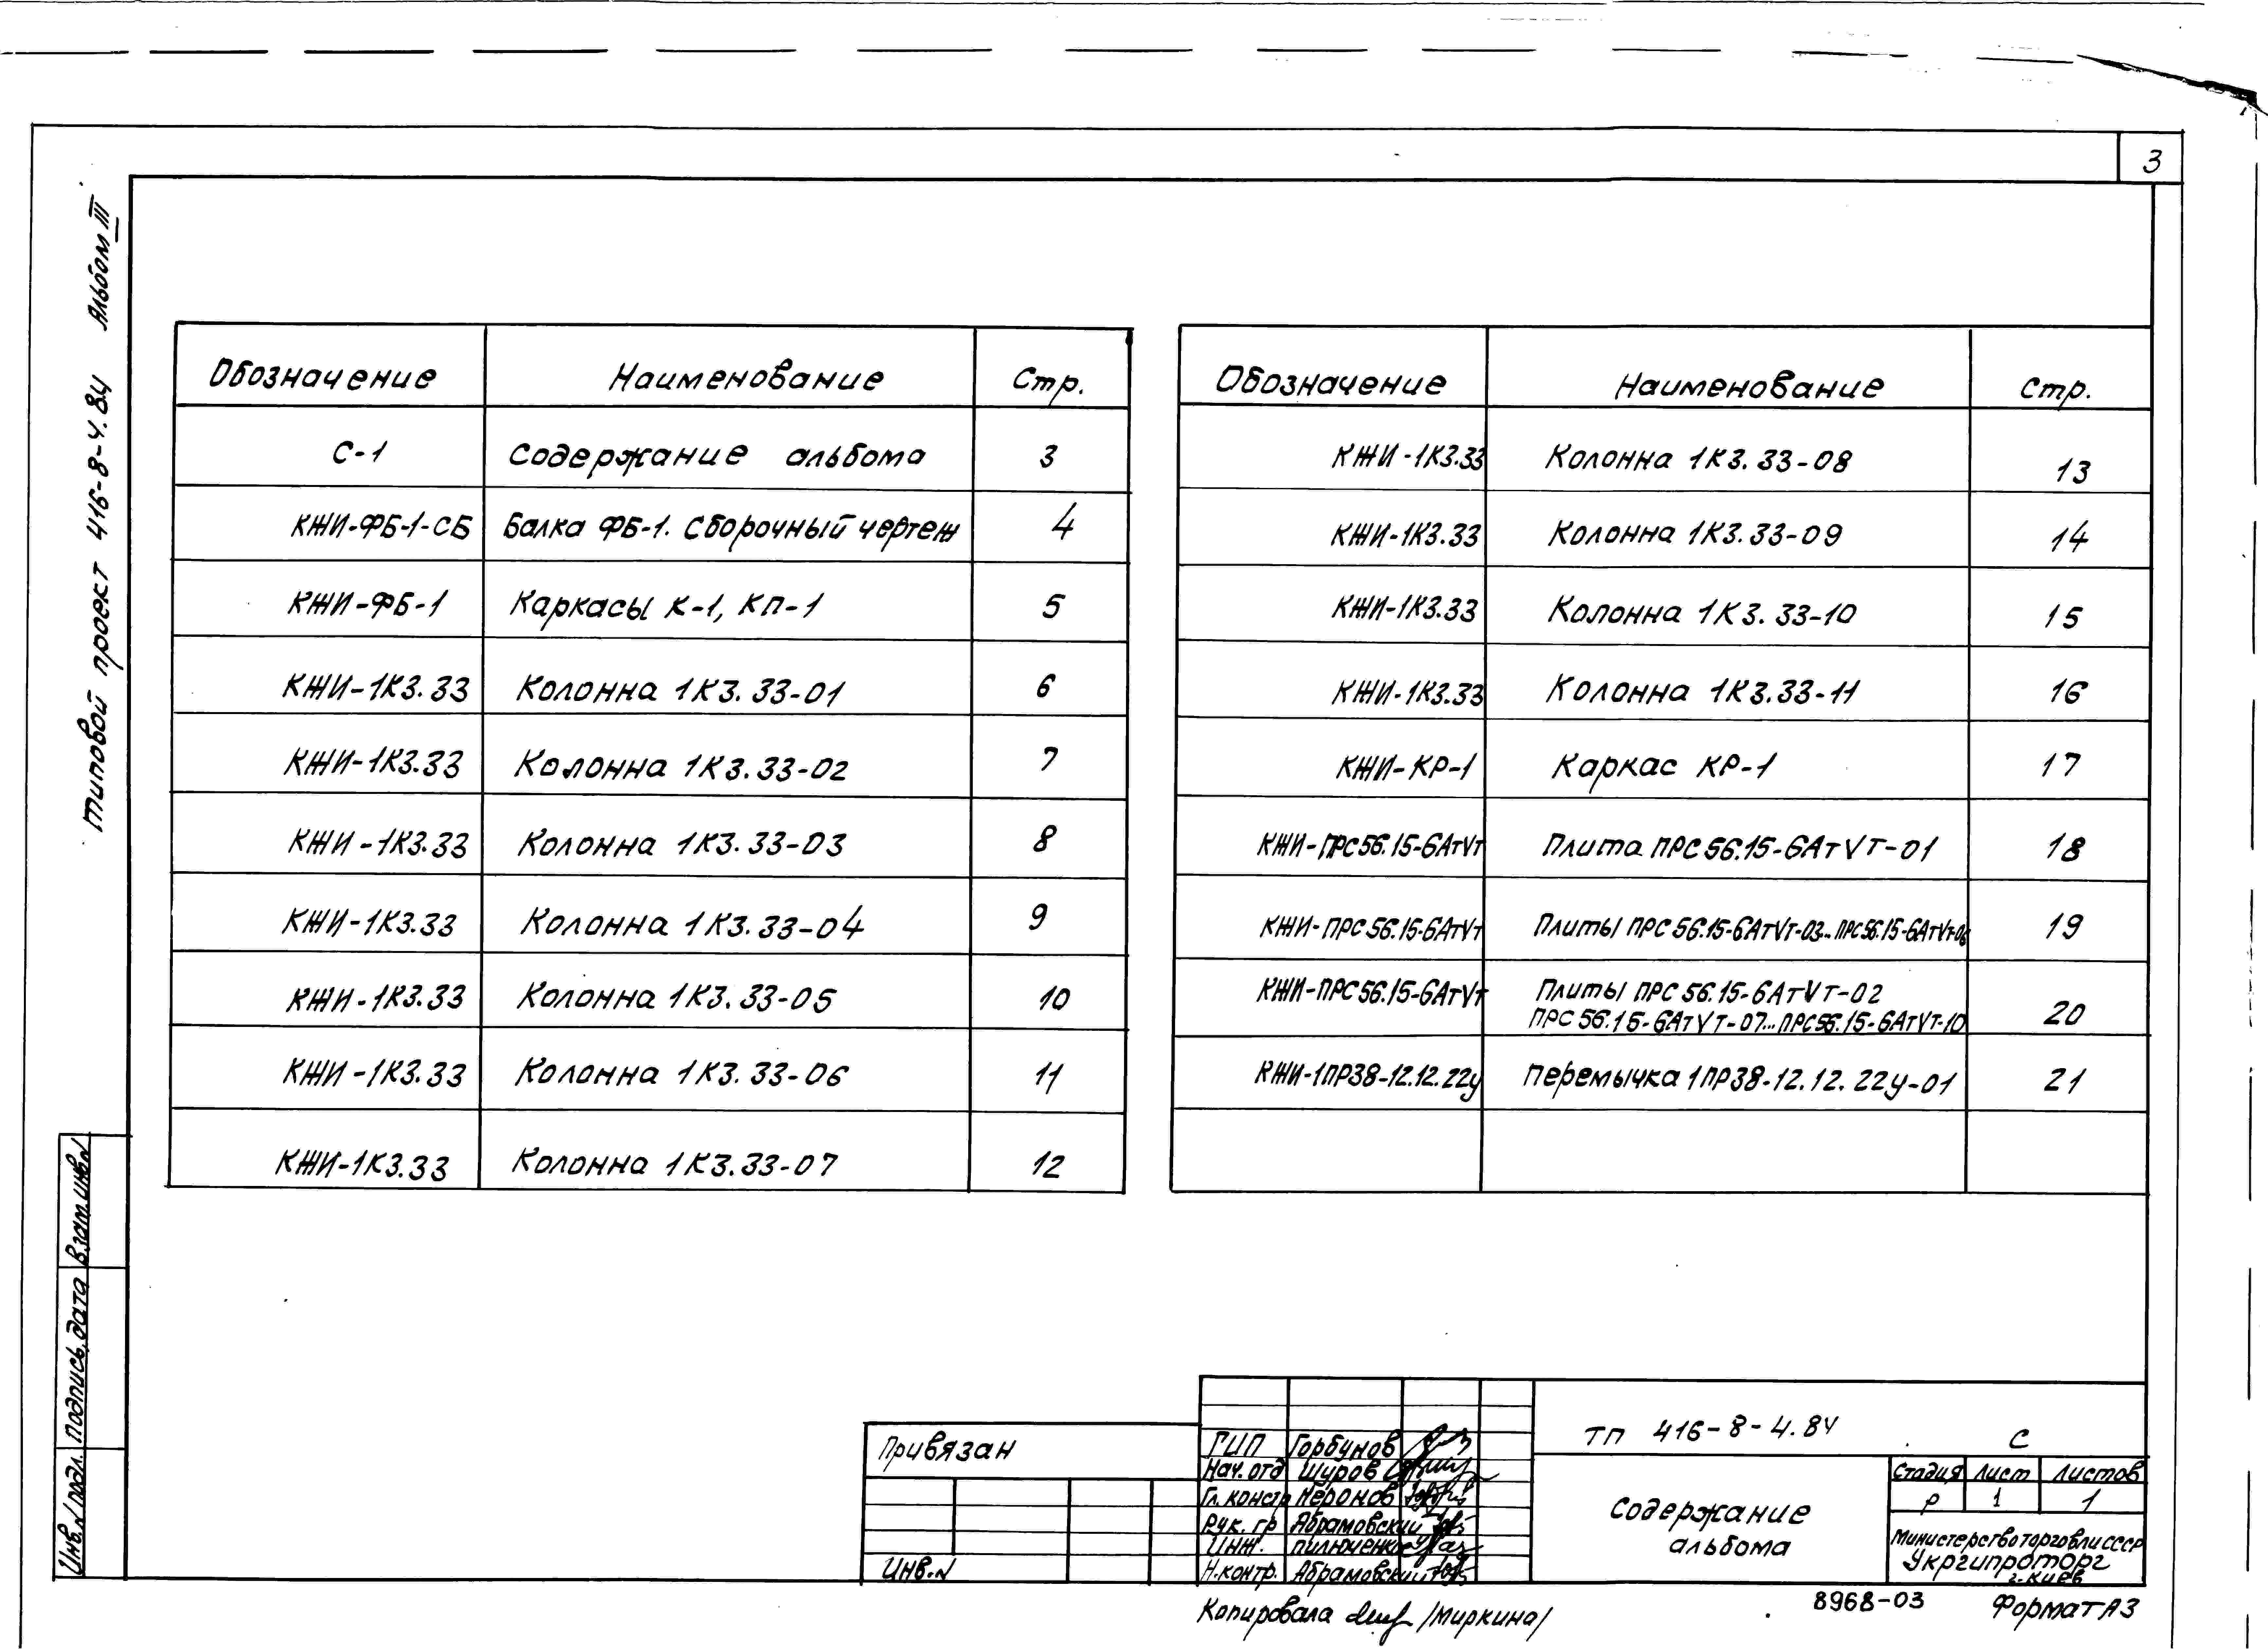 3
Типовой проект 416-8-4.84 Альбом III
Обозначение Наименование Стр.
С-1 Содержание альбома 3
КЖИ-ФБ-1-СБ Балка ФБ-1. Сборочный чертеж 4
КЖИ-ФБ-1 Каркасы К-1, КП-1 5
КЖИ-1К3.33 Колонна 1К3.33-01 6
КЖИ-1К3.33 Колонна 1К3.33-02 7
КЖИ-1К3.33 Колонна 1К3.33-03 8
КЖИ-1К3.33 Колонна 1К3.33-04 9
КЖИ-1К3.33 Колонна 1К3.33-05 10
КЖИ-1К3.33 Колонна 1К3.33-06 11
КЖИ-1К3.33 Колонна 1К3.33-07 12
Обозначение Наименование Стр.
КЖИ-1К3.33 Колонна 1К3.33-08 13
КЖИ-1К3.33 Колонна 1К3.33-09 14
КЖИ-1К3.33 Колонна 1К3.33-10 15
КЖИ-1К3.33 Колонна 1К3.33-11 16
КЖИ-КР-1 Каркас КР-1 17
КЖИ-ПРС56.15-6АтVт Плита ПРС56.15-6АтVТ-01 18
КЖИ-ПРС56.15-6АтVт Плиты ПРС56.15-6АтVт-03...ПРС56.15-6АтVт-06 19
КЖИ-ПРС56.15-6АтVт Плиты ПРС56.15-6АтVт-02
ПРС56.15-6АтVТ-07...ПРС56.15-6АтVТ-10 20
КЖИ-1ПР38-12.12.22у Перемычка 1ПР38-12.12.22у-01 21
Взам.инв.N
Подпись, дата
Инв.N подл.
Привязан
Инв.N
ГИП Горбунов
Нач.отд Шуров
Гл.констр Неронов
Рук.гр Абрамовский
Инж. Пилюченко
Н.контр. Абрамовский
ТП 416-8-4.84 С
Содержание
альбома
Стадия Лист Листов
Р 1 1
Министерство торговли СССР
Укргипроторг
г.Киев
Копировала /Миркина/
8968-03 Формат А3